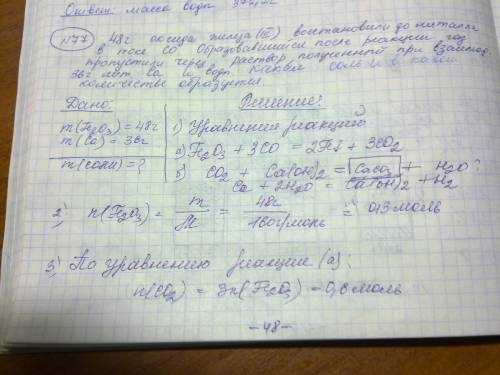 Ответ: масса
№77 48г оксида железа (III) восстановили до металла
в токе CO Образовавшийся после реакции газ
пропустили через раствор, полученный при взаимод
36г мет. Ca и вод. Какая соль и в каком
количестве образуется.
Дано: Решение:
m(Fe2O3) = 48г 1) Уравнения реакций
m(Ca) = 36г а) Fe2O3 + 3CO = 2Fe↓ + 3CO2
m(соли) = ? б) CO2 + Ca(OH)2 = CaCO3 + H2O?
Ca + 2H2O = Ca(OH)2 + H2
2) n(Fe2O3) = m/M = 48г/160г/моль = 0,3 моль
3) По уравнению реакции (а):
n(CO2) = 3n(Fe2O3) = 0,6 моль
-48-